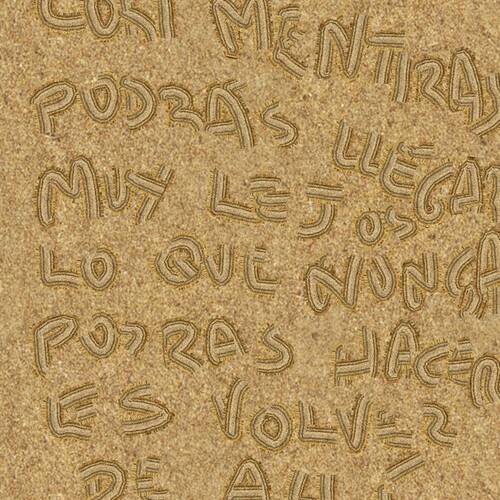 CON MENTIRAS
PODRAS LLEGAR
MUY LEJOS
LO QUE NUNCA
PODRAS HACER
ES VOLVER
DE AHI